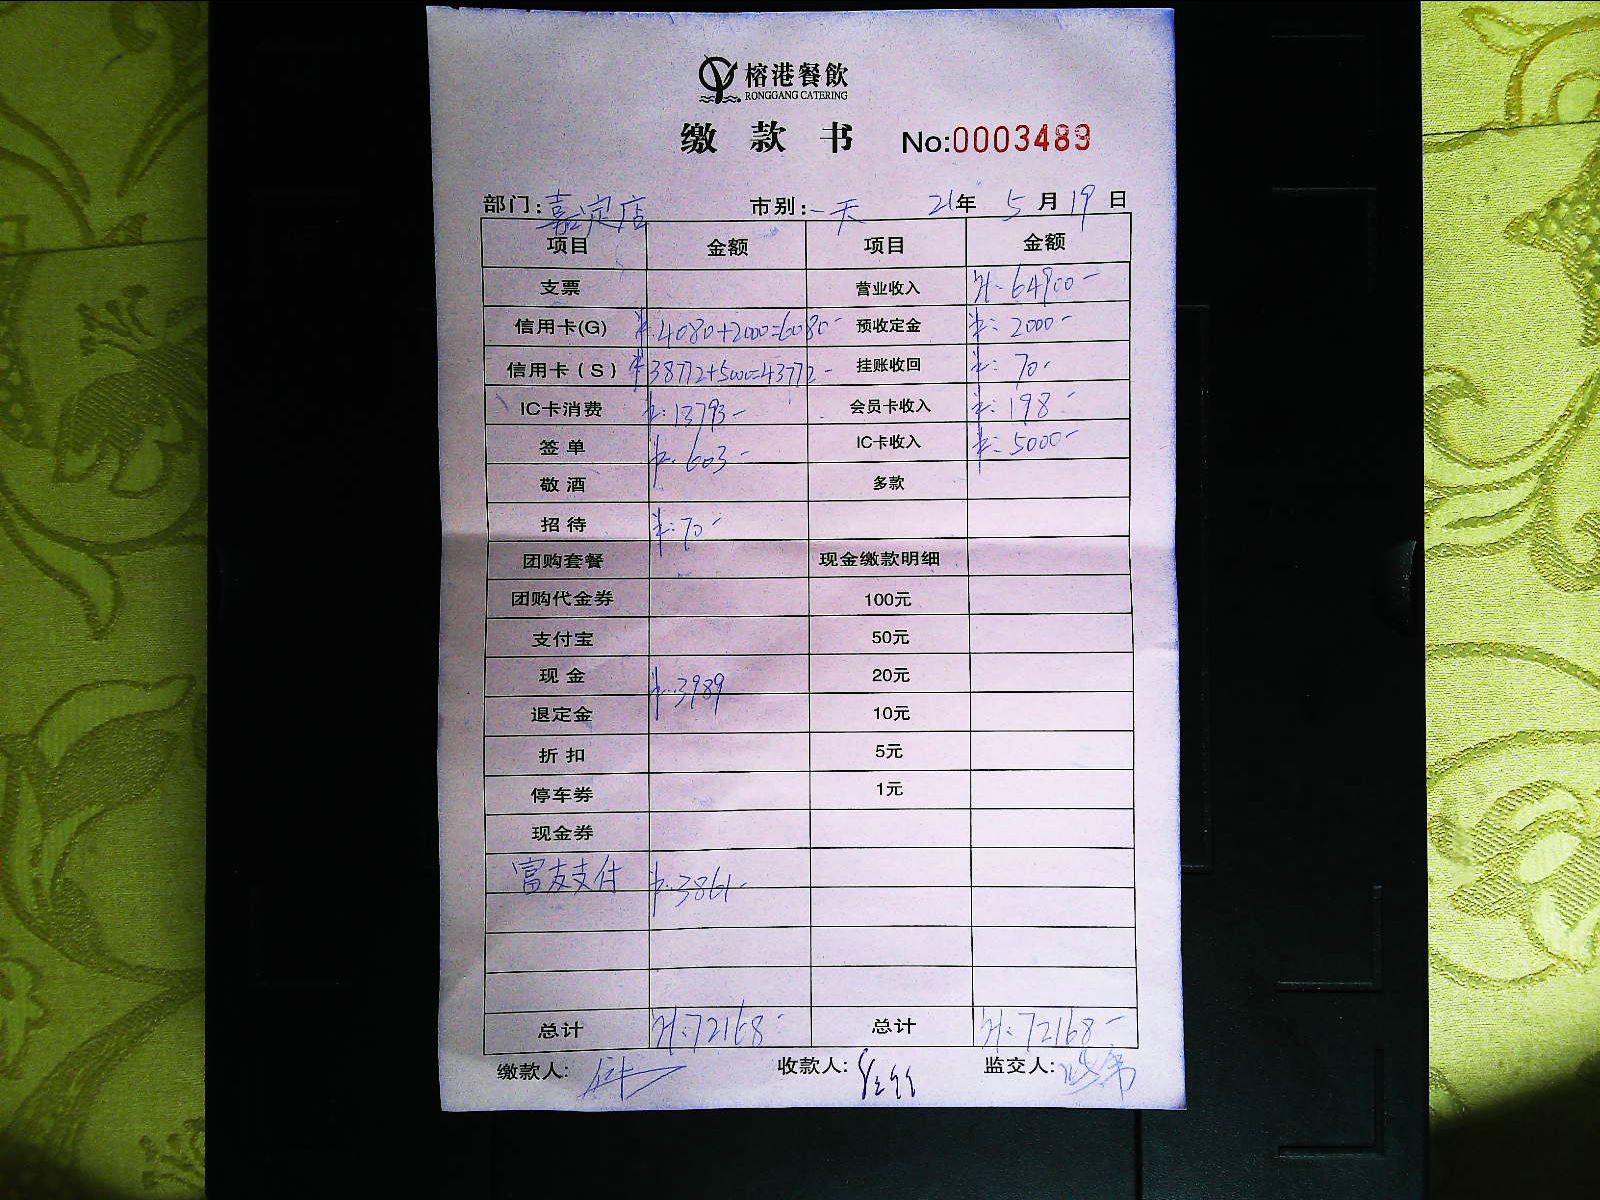 榕港餐飲
RONGGANG CATERING
缴款书 No:0003489
部门:嘉定店 市别:一天 21年5月19日
项目 金额 项目 金额
支票 营业收入 ¥:64900-
信用卡(G) ¥:4080+2000=6080- 预收定金 ¥:2000-
信用卡(S) ¥38772+5000=43772- 挂账收回 ¥:70-
IC卡消费 ¥:13793- 会员卡收入 ¥:198-
签单 ¥:603- IC卡收入 ¥:5000-
敬酒 多款
招待 ¥:70-
团购套餐 现金缴款明细
团购代金券 100元
支付宝 50元
现金 ¥:3989 20元
退定金 10元
折扣 5元
停车券 1元
现金券
富友支付 ¥:3861-
总计 ¥:72168- 总计 ¥:72168-
缴款人: 收款人: 监交人: